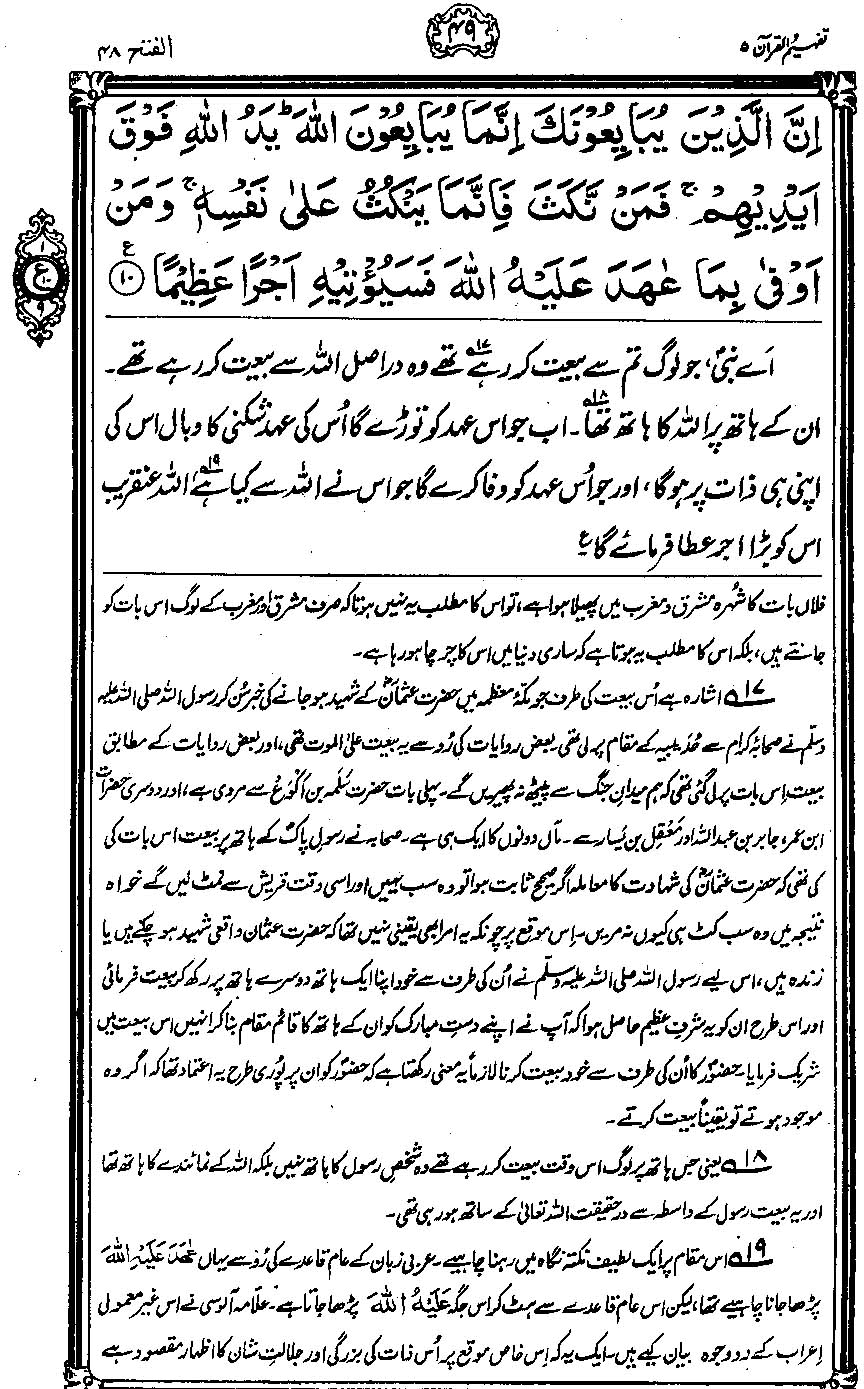 تفہیم القرآن ۵
۴۹
الفتح ۴۸
اِنَّ الَّذِيْنَ يُبَايِعُوْنَكَ اِنَّمَا يُبَايِعُوْنَ اللّٰهَ ؕ يَدُ اللّٰهِ فَوْقَ
اَيْدِيْهِمْ ۚ فَمَنْ نَّكَثَ فَاِنَّمَا يَنْكُثُ عَلٰى نَفْسِهٖ ۚ وَمَنْ
اَوْفٰى بِمَا عٰهَدَ عَلَيْهُ اللّٰهَ فَسَيُؤْتِيْهِ اَجْرًا عَظِيْمًا ﴿۱۰﴾ ع
۱
ع
۱۰
۹
اَے نبیؐ، جو لوگ تم سے بیعت کر رہے ۱۷؎ تھے وہ دراصل اللہ سے بیعت کر رہے تھے۔
ان کے ہاتھ پر اللہ کا ہاتھ تھا ۱۸؎۔ اب جو اس عہد کو توڑے گا اُس کی عہد شکنی کا وبال اس کی
اپنی ہی ذات پر ہوگا، اور جو اُس عہد کو وفا کرے گا جو اس نے اللہ سے کیا ہے ۱۹؎، اللہ عنقریب
اس کو بڑا اجر عطا فرمائے گا ع
فلاں بات کا شُہرہ مشرق و مغرب میں پھیلا ہوا ہے، تو اس کا مطلب یہ نہیں ہوتا کہ صرف مشرق اور مغرب کے لوگ اس بات کو
جانتے ہیں، بلکہ اس کا مطلب یہ ہوتا ہے کہ ساری دنیا میں اس کا چرچا ہو رہا ہے۔
۱۷؎ اشارہ ہے اُس بیعت کی طرف جو مکۂ معظمہ میں حضرت عثمانؓ کے شہید ہو جانے کی خبر سُن کر رسول اللہ صلی اللہ علیہ
وسلّم نے صحابۂ کرام سے حُدَیبیہ کے مقام پر لی تھی۔ بعض روایات کی رُو سے یہ بیعت علیٰ الموت تھی، اور بعض روایات کے مطابق
بیعت اِس بات پر لی گئی تھی کہ ہم میدانِ جنگ سے پیٹھ نہ پھیریں گے۔ پہلی بات حضرت سَلَمہ بن اَکْوَع سے مروی ہے، اور دوسری حضرات
ابن عمر، جابر بن عبداللہ اور مَعْقِل بن یَسار سے۔ مآل دونوں کا ایک ہی ہے۔ صحابہ نے رسولِ پاکؐ کے ہاتھ پر بیعت اس بات کی
کی تھی کہ حضرت عثمانؓ کی شہادت کا معاملہ اگر صحیح ثابت ہوا تو وہ سب یہیں اور اسی وقت قریش سے نمٹ لیں گے خواہ
نتیجہ میں وہ سب کٹ ہی کیوں نہ مریں۔ اِس موقع پر چونکہ یہ امر ابھی یقینی نہیں تھا کہ حضرت عثمان واقعی شہید ہو چکے ہیں یا
زندہ ہیں، اس لیے رسول اللہ صلی اللہ علیہ وسلّم نے اُن کی طرف سے خود اپنا ایک ہاتھ دوسرے ہاتھ پر رکھ کر بیعت فرمائی
اور اس طرح ان کو یہ شرفِ عظیم حاصل ہوا کہ آپ نے اپنے دستِ مبارک کو ان کے ہاتھ کا قائم مقام بنا کر انہیں اس بیعت میں
شریک فرمایا۔ حضورؐ کا اُن کی طرف سے خود بیعت کرنا لازماً یہ معنی رکھتا ہے کہ حضورؐ کو ان پر پُوری طرح یہ اعتماد تھا کہ اگر وہ
موجود ہوتے تو یقیناً بیعت کرتے۔
۱۸؎ یعنی جس ہاتھ پر لوگ اس وقت بیعت کر رہے تھے وہ شخصِ رسول کا ہاتھ نہیں بلکہ اللہ کے نمائندے کا ہاتھ تھا
اور یہ بیعت رسول کے واسطہ سے درحقیقت اللہ تعالیٰ کے ساتھ ہو رہی تھی۔
۱۹؎ اس مقام پر ایک لطیف نکتہ نگاہ میں رہنا چاہیے۔ عربی زبان کے عام قاعدے کی رُو سے یہاں عٰهَدَ عَلَيْهِ اللّٰهَ
پڑھا جانا چاہیے تھا، لیکن اس عام قاعدے سے ہٹ کر اس جگہ عَلَيْهُ اللّٰهَ پڑھا جاتا ہے۔ علامہ آلوسی نے اس غیر معمولی
اِعراب کے دو وجوہ بیان کیے ہیں۔ ایک یہ کہ اِس خاص موقع پر اُس ذات کی بزرگی اور جلالتِ شان کا اظہار مقصود ہے